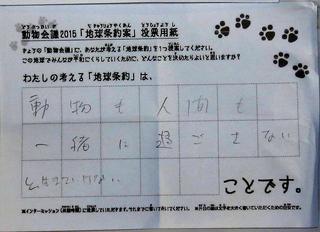 動物会議2015「地球条約案」投票用紙
きょうの「動物会議」に、あなたが考える「地球条約」を1つ提案してください。
この地球でみんなが平和にくらしていくために、どんなことを決めたらよいと思いますか?
わたしの考える「地球条約」は、
動物も人間も
一緒に過ごさない
と生きていけない
ことです。